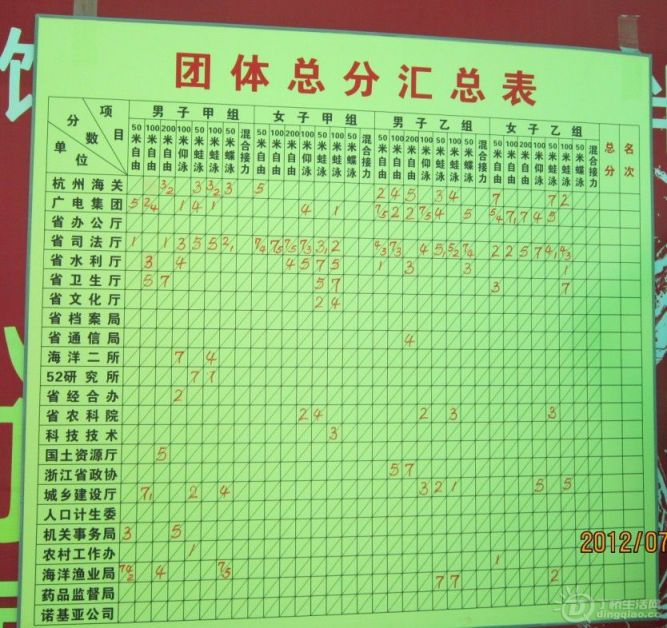 团体总分汇总表
项目 分数 单位 男子甲组 女子甲组 男子乙组 女子乙组 总分 名次
50米自由 100米自由 200米自由 100米仰泳 50米蛙泳 100米蛙泳 50米蝶泳 混合接力 50米自由 100米自由 200米自由 100米仰泳 50米蛙泳 100米蛙泳 50米蝶泳 混合接力 50米自由 100米自由 200米自由 100米仰泳 50米蛙泳 100米蛙泳 50米蝶泳 混合接力 50米自由 100米自由 200米自由 100米仰泳 50米蛙泳 100米蛙泳 50米蝶泳 混合接力
杭州海关 3 2 3 3 2 3 5 2 4 5 3 4 7 7 2
广电集团 5 2 4 1 4 1 4 1 7 5 2 2 7 5 4 5 5 4 7 1 7 4 5
省办公厅
省司法厅 1 1 3 5 5 2 1 7 4 7 5 7 5 7 3 3 1 2 4 3 7 3 4 5 1 5 2 7 4 2 2 5 7 4 1 4 3
省水利厅 3 4 4 5 7 5 1 3 3 1
省卫生厅 5 7 5 7 3 7
省文化厅 2 4
省档案局
省通信局 4
海洋二所 7 4
52研究所 7 1
省经合办 2
省农科院 2 4 2 3 3
科技技术 3
国土资源厅 5
浙江省政协 5 7
城乡建设厅 7 1 2 4 3 2 1 5 5
人口计生委
机关事务局 3 5
农村工作办 1 1
海洋渔业局 7 2 4 7 5 7 7 2
药品监督局
诺基亚公司
2012/07
丁桥生活网
dingqiao.cc